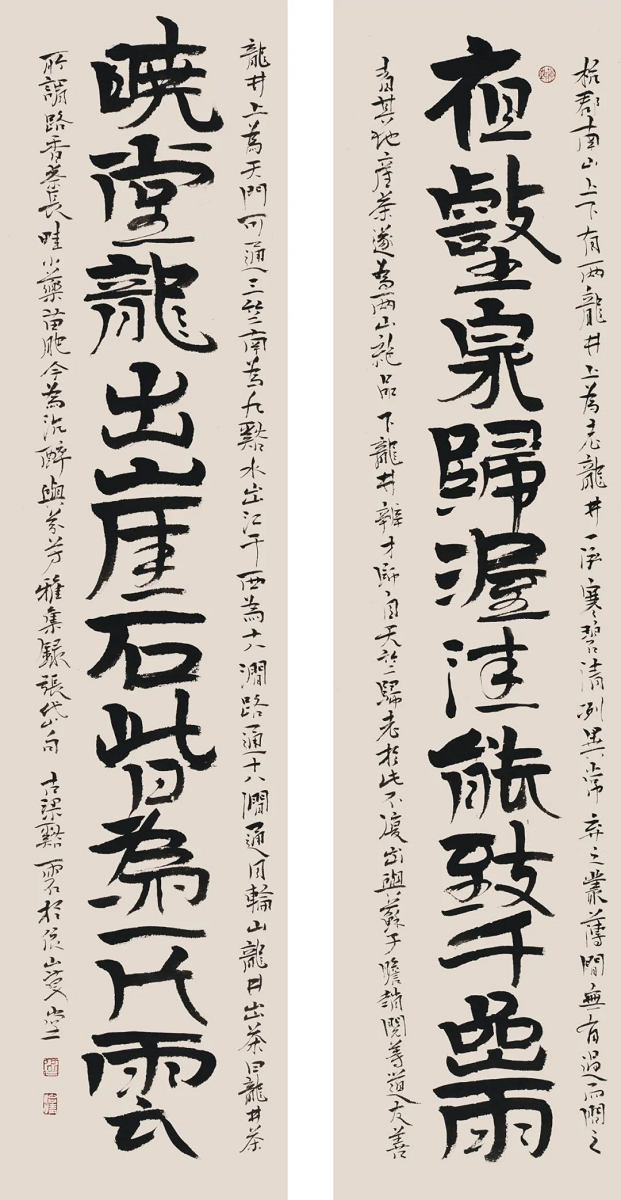 杭郡南山上下有兩龍井上為老龍井一泓寒碧清冽異常棄之叢薄間無有過而問之
夜壑泉歸渥洼能致千嵒雨
者其地產茶遂為兩山絕品下龍井辯才師自天竺歸老於此不復出與蘇子瞻趙閱等道友善
龍井上為天門可通三竺南為九谿水出江干西為十八澗路通十八澗通月輪山龍井出茶曰龍井茶
曉堂龍出崖石皆為一片雲
所謂路香茶長畦小藥苗肥今為沉醉與芬芳雅集錄張岱句 古梁谿雲於山堂